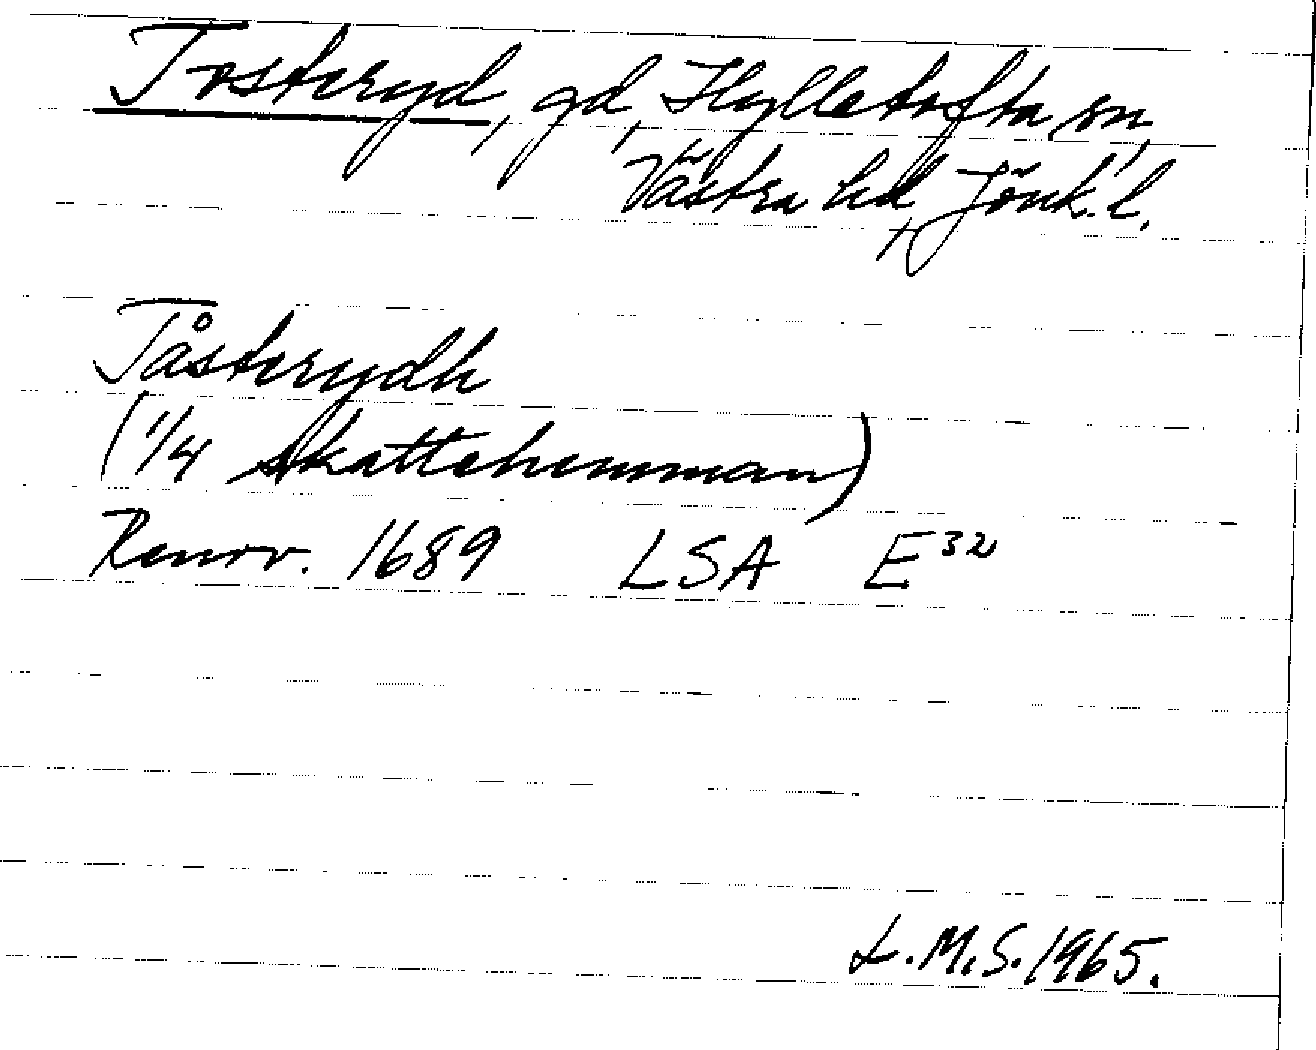 Tosteryd, gd, Hylletofta sn,
Västra hd, Jönk. l.
Tåsterydh
(1/4 skattehemman)
Renov. 1689 LSA E³²
L.M.S. 1965.